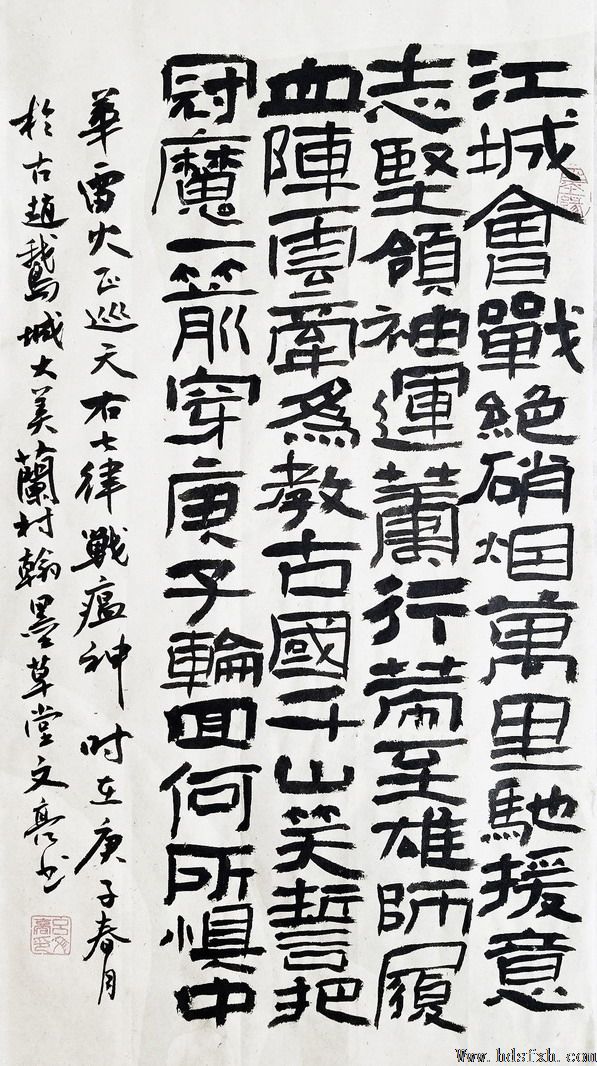 江城會戰絕硝烟萬里馳援意
志堅領袖運行至雄師履
血陣雲牽為教古國千山笑誓把
冠魔一箭穿庚子輪回何所懼中
華雷火正巡天右七律戰瘟神时在庚子春月
於古趙鵝城大美蘭村翰墨草堂文亮书
Www.hdsfxh.com